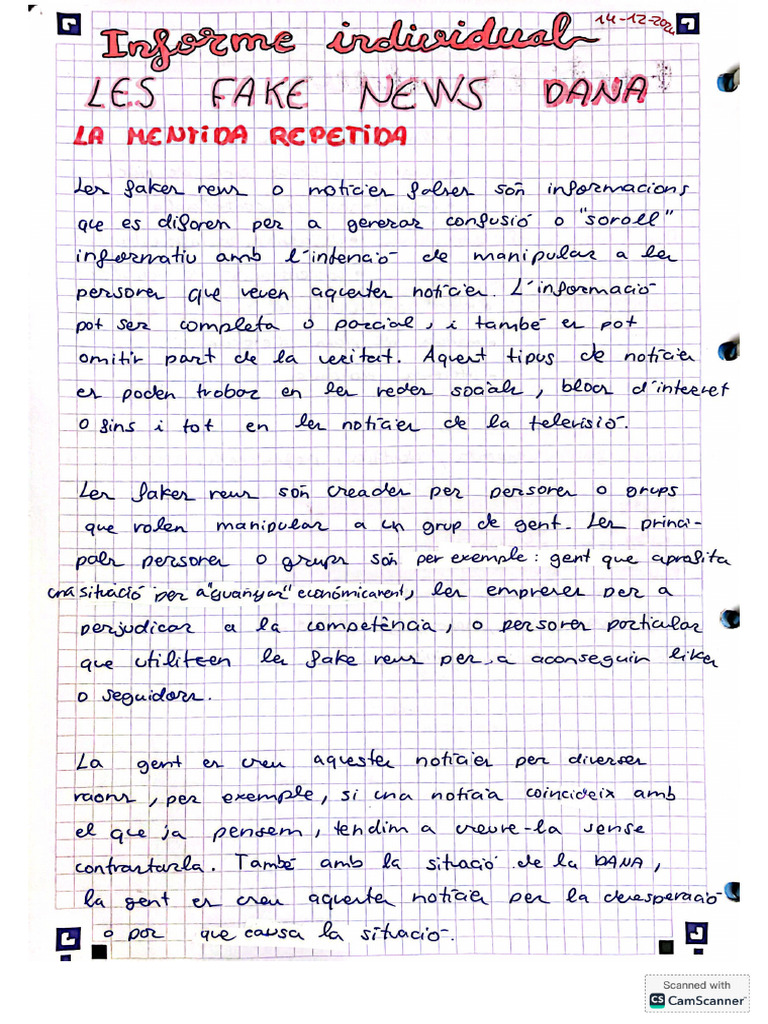 Informe individual 14-12-2024
LES FAKE NEWS DANA
LA MENTIDA REPETIDA
Les fakes news o notícies falses són informacions
que es difonen per a generar confusió o "soroll"
informatiu amb l'intenció de manipular a les
persones que veuen aquestes notícies. L'informació
pot ser completa o parcial, i també es pot
omitir part de la veritat. Aquest tipus de notícies
es poden trobar en les redes socials, blocs d'internet
o fins i tot en les notícies de la televisió.
Les fakes news són creades per persones o grups
que volen manipular a un grup de gent. Les princi-
pals persones o grups són per exemple: gent que aprofita
una situació per a "guanyar" económicament, les empreses per a
perjudicar a la competència, o persones particulars
que utilitzen les fake news per a aconseguin likes
o seguidors.
La gent es creu aquestes notícies per diverses
raons, per exemple, si una notícia coincideix amb
el que ja pensem, tendim a creure-la sense
contrastarla. També amb la situació de la DANA,
la gent es creu aquestes notícies per la desesperació
o por que causa la situació.
Scanned with
CS CamScanner